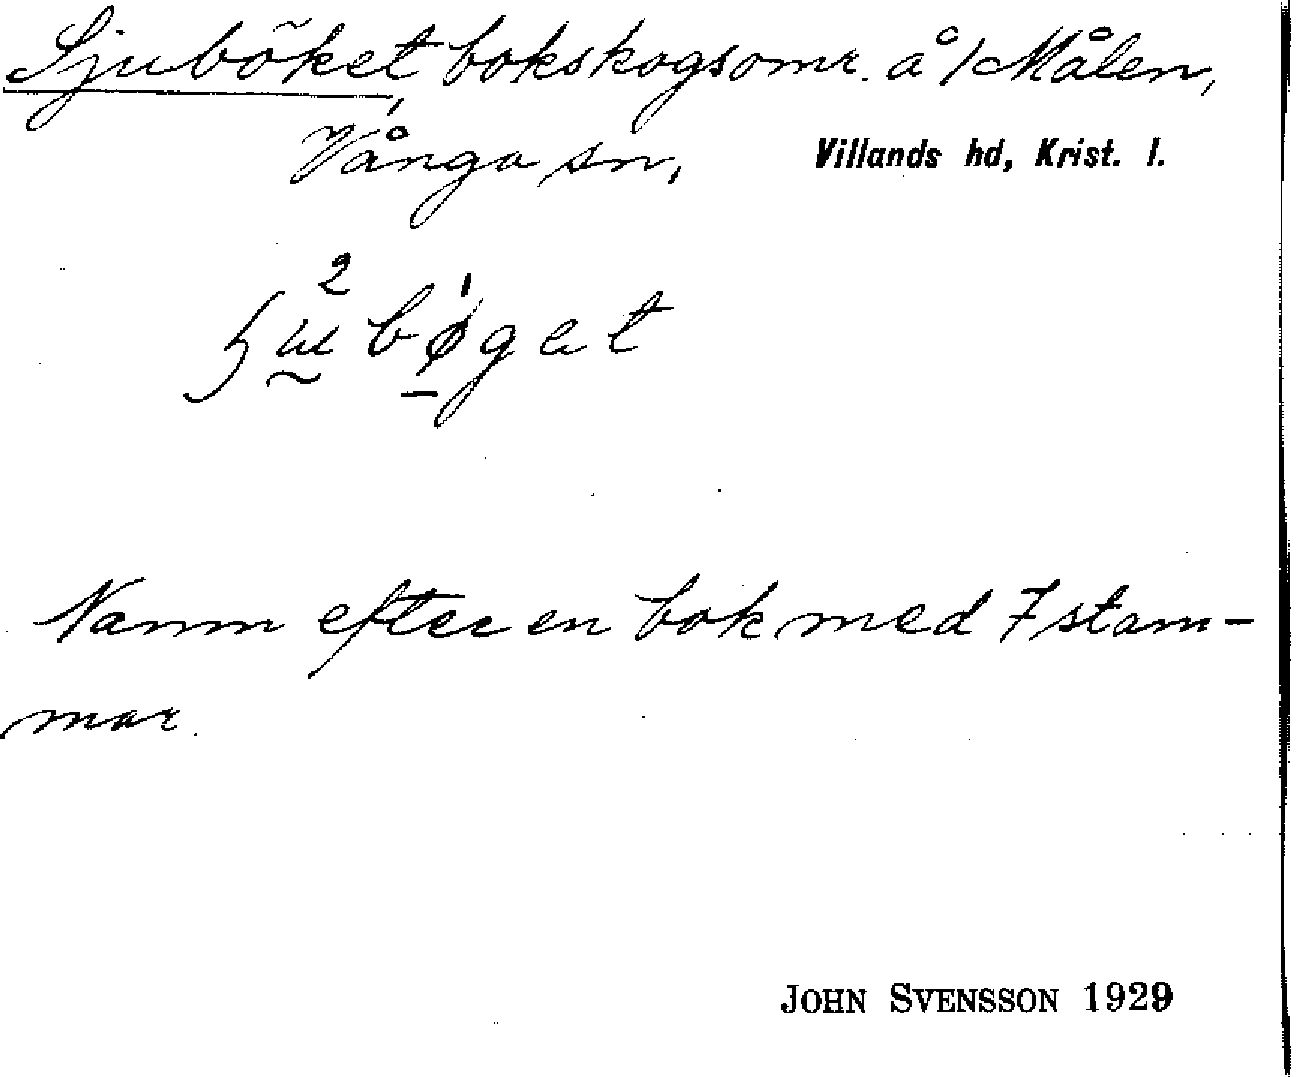 Sjuböket, bokskogsomr. å /Målen,
Vånga sn, Villands hd, Krist. l.
Namn efter en bok med 7 stam-
mar.
JOHN SVENSSON 1929